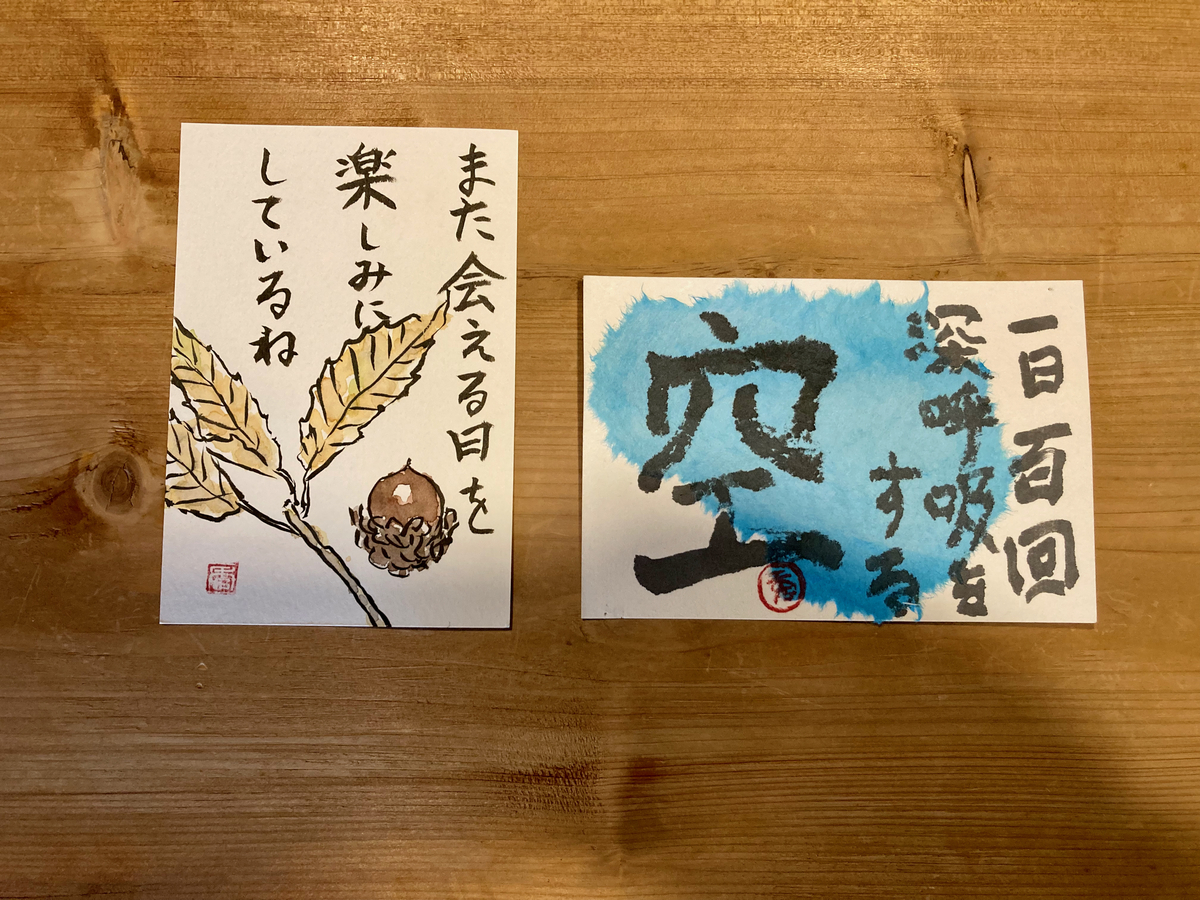 また会える日を
楽しみに
しているね
一日百回
深呼吸を
する
空